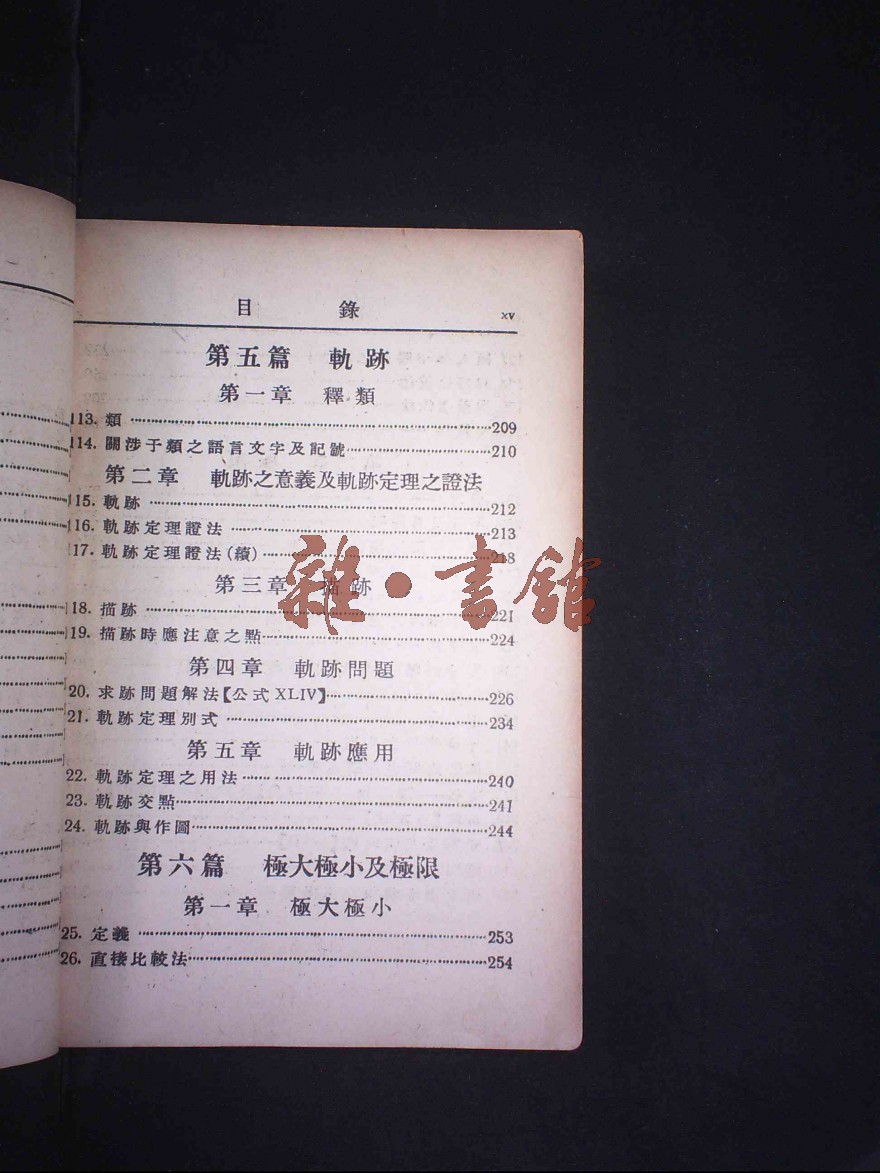 目錄 xv
第五篇 軌跡
第一章 釋類
113. 類 209
114. 關涉于類之語言文字及記號 210
第二章 軌跡之意義及軌跡定理之證法
115. 軌跡 212
16. 軌跡定理證法 213
17. 軌跡定理證法(續) 218
第三章 描跡
18. 描跡 221
19. 描跡時應注意之點 224
第四章 軌跡問題
20. 求跡問題解法【公式 XLIV】 226
21. 軌跡定理別式 234
第五章 軌跡應用
22. 軌跡定理之用法 240
23. 軌跡交點 241
24. 軌跡與作圖 244
第六篇 極大極小及極限
第一章 極大極小
25. 定義 253
26. 直接比較法 254
雜·書館